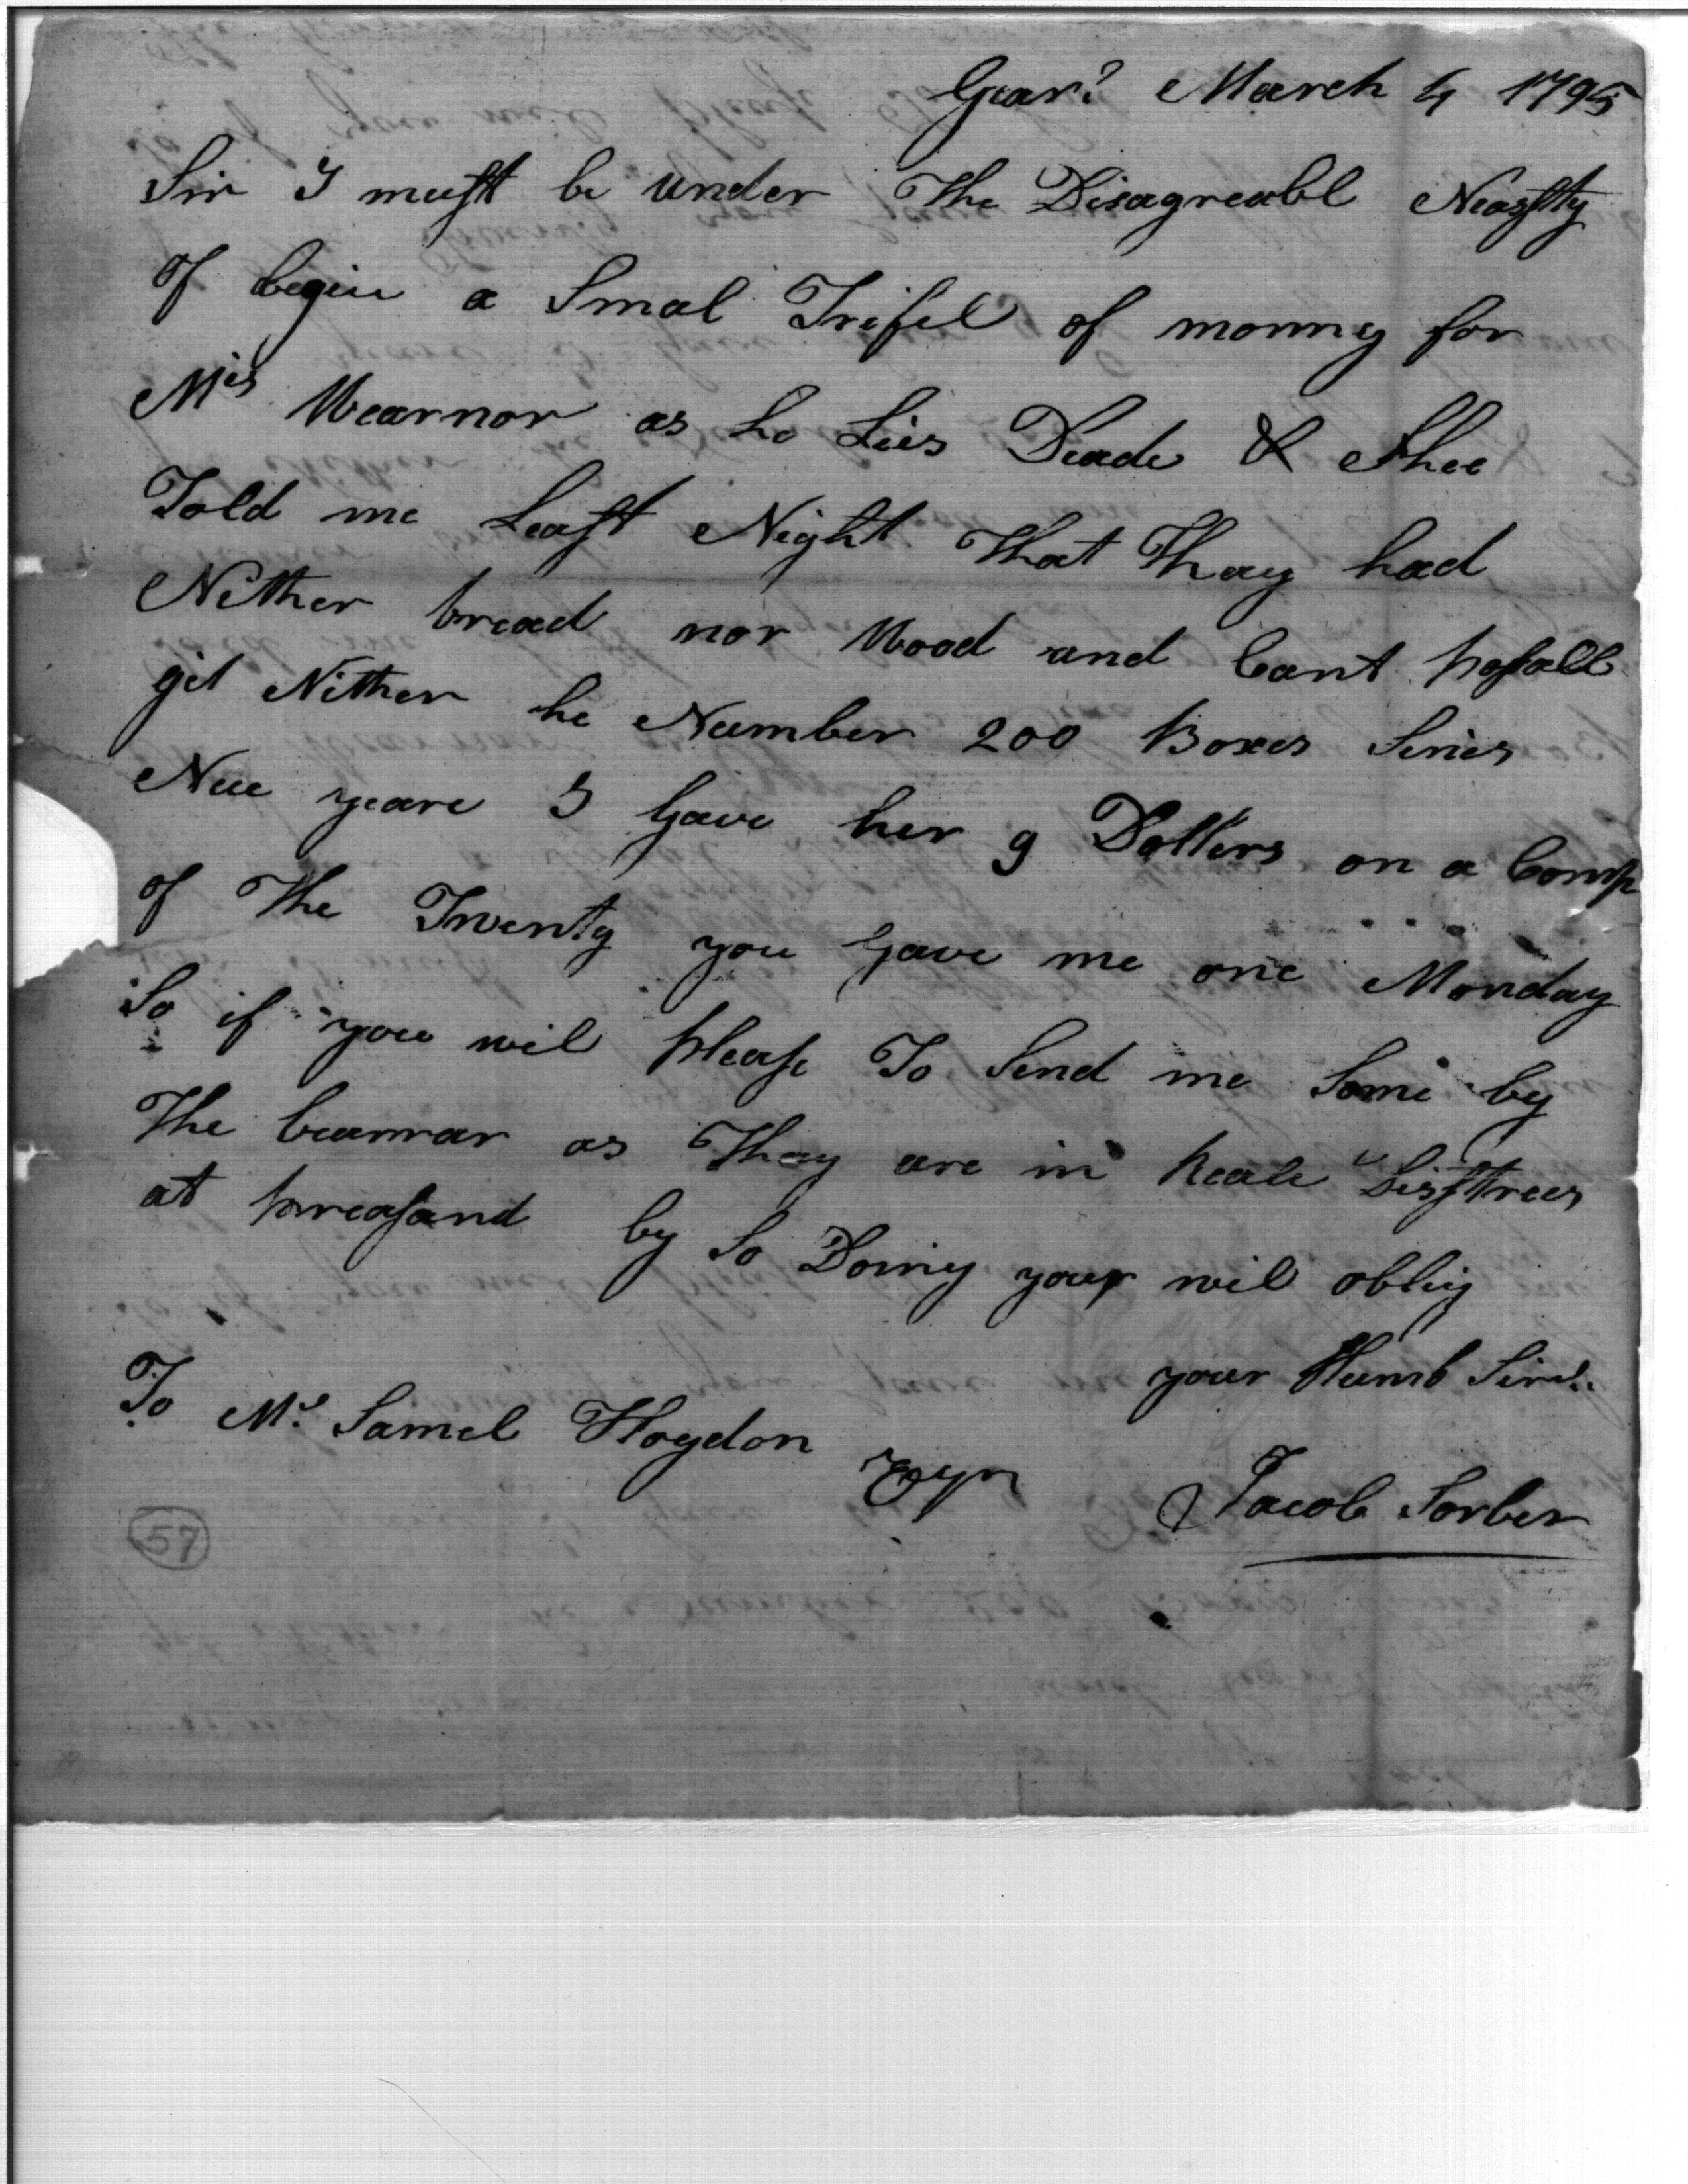 March 4 1795
Sir I must be under The Disagreabl Neassty
of begin a Smal Trifel of monny for
Mis Wearnor as he Lies Deade & Shee
Told me Least Night That Thay had
Nither bread nor Wood and Cant posabl
git Nither he Number 200 Boxes Sines
Nue yeare I Gave her 9 Dollers on a Comp
of The Twenty you Gave me one Monday
So if you wil please To Send me Some by
The bearrar as Thay are in Reale Disstrees
at preasand by So Doing your wil oblig
your Humb Sirvt
To Mr Samel Hogdon
Esqr
Jacob Sorber
57